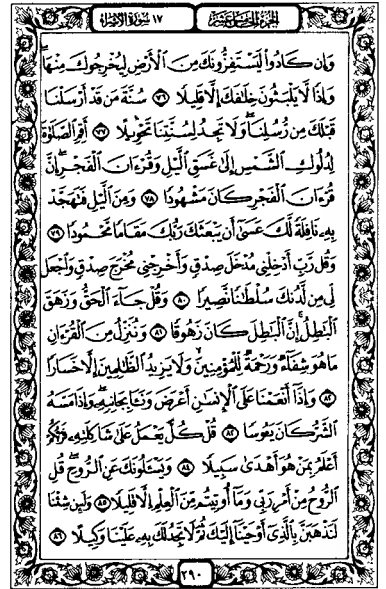 الجزء الخامس عشر ١٧ سورة الإسراء
وَإِن كَادُواْ لَيَسْتَفِزُّونَكَ مِنَ ٱلْأَرْضِ لِيُخْرِجُوكَ مِنْهَاۖ
وَإِذًا لَّا يَلْبَثُونَ خِلَٰفَكَ إِلَّا قَلِيلًا ٧٦ سُنَّةَ مَن قَدْ أَرْسَلْنَا
قَبْلَكَ مِن رُّسُلِنَاۖ وَلَا تَجِدُ لِسُنَّتِنَا تَحْوِيلًا ٧٧ أَقِمِ ٱلصَّلَوٰةَ
لِدُلُوكِ ٱلشَّمْسِ إِلَىٰ غَسَقِ ٱلَّيْلِ وَقُرْءَانَ ٱلْفَجْرِۖ إِنَّ
قُرْءَانَ ٱلْفَجْرِ كَانَ مَشْهُودًا ٧٨ وَمِنَ ٱلَّيْلِ فَتَهَجَّدْ
بِهِۦ نَافِلَةً لَّكَ عَسَىٰٓ أَن يَبْعَثَكَ رَبُّكَ مَقَامًا مَّحْمُودًا ٧٩
وَقُل رَّبِّ أَدْخِلْنِى مُدْخَلَ صِدْقٍ وَأَخْرِجْنِى مُخْرَجَ صِدْقٍ وَٱجْعَل
لِّى مِن لَّدُنكَ سُلْطَٰنًا نَّصِيرًا ٨٠ وَقُلْ جَآءَ ٱلْحَقُّ وَزَهَقَ
ٱلْبَٰطِلُۚ إِنَّ ٱلْبَٰطِلَ كَانَ زَهُوقًا ٨١ وَنُنَزِّلُ مِنَ ٱلْقُرْءَانِ
مَا هُوَ شِفَآءٌ وَرَحْمَةٌ لِّلْمُؤْمِنِينَۙ وَلَا يَزِيدُ ٱلظَّٰلِمِينَ إِلَّا خَسَارًا
٨٢ وَإِذَآ أَنْعَمْنَا عَلَى ٱلْإِنسَٰنِ أَعْرَضَ وَنَـَٔا بِجَانِبِهِۦۖ وَإِذَا مَسَّهُ
ٱلشَّرُّ كَانَ يَـُٔوسًا ٨٣ قُلْ كُلٌّ يَعْمَلُ عَلَىٰ شَاكِلَتِهِۦ فَرَبُّكُمْ
أَعْلَمُ بِمَنْ هُوَ أَهْدَىٰ سَبِيلًا ٨٤ وَيَسْـَٔلُونَكَ عَنِ ٱلرُّوحِۖ قُلِ
ٱلرُّوحُ مِنْ أَمْرِ رَبِّى وَمَآ أُوتِيتُم مِّنَ ٱلْعِلْمِ إِلَّا قَلِيلًا ٨٥ وَلَئِن شِئْنَا
لَنَذْهَبَنَّ بِٱلَّذِىٓ أَوْحَيْنَآ إِلَيْكَ ثُمَّ لَا تَجِدُ لَكَ بِهِۦ عَلَيْنَا وَكِيلًا ٨٦
٢٩٠